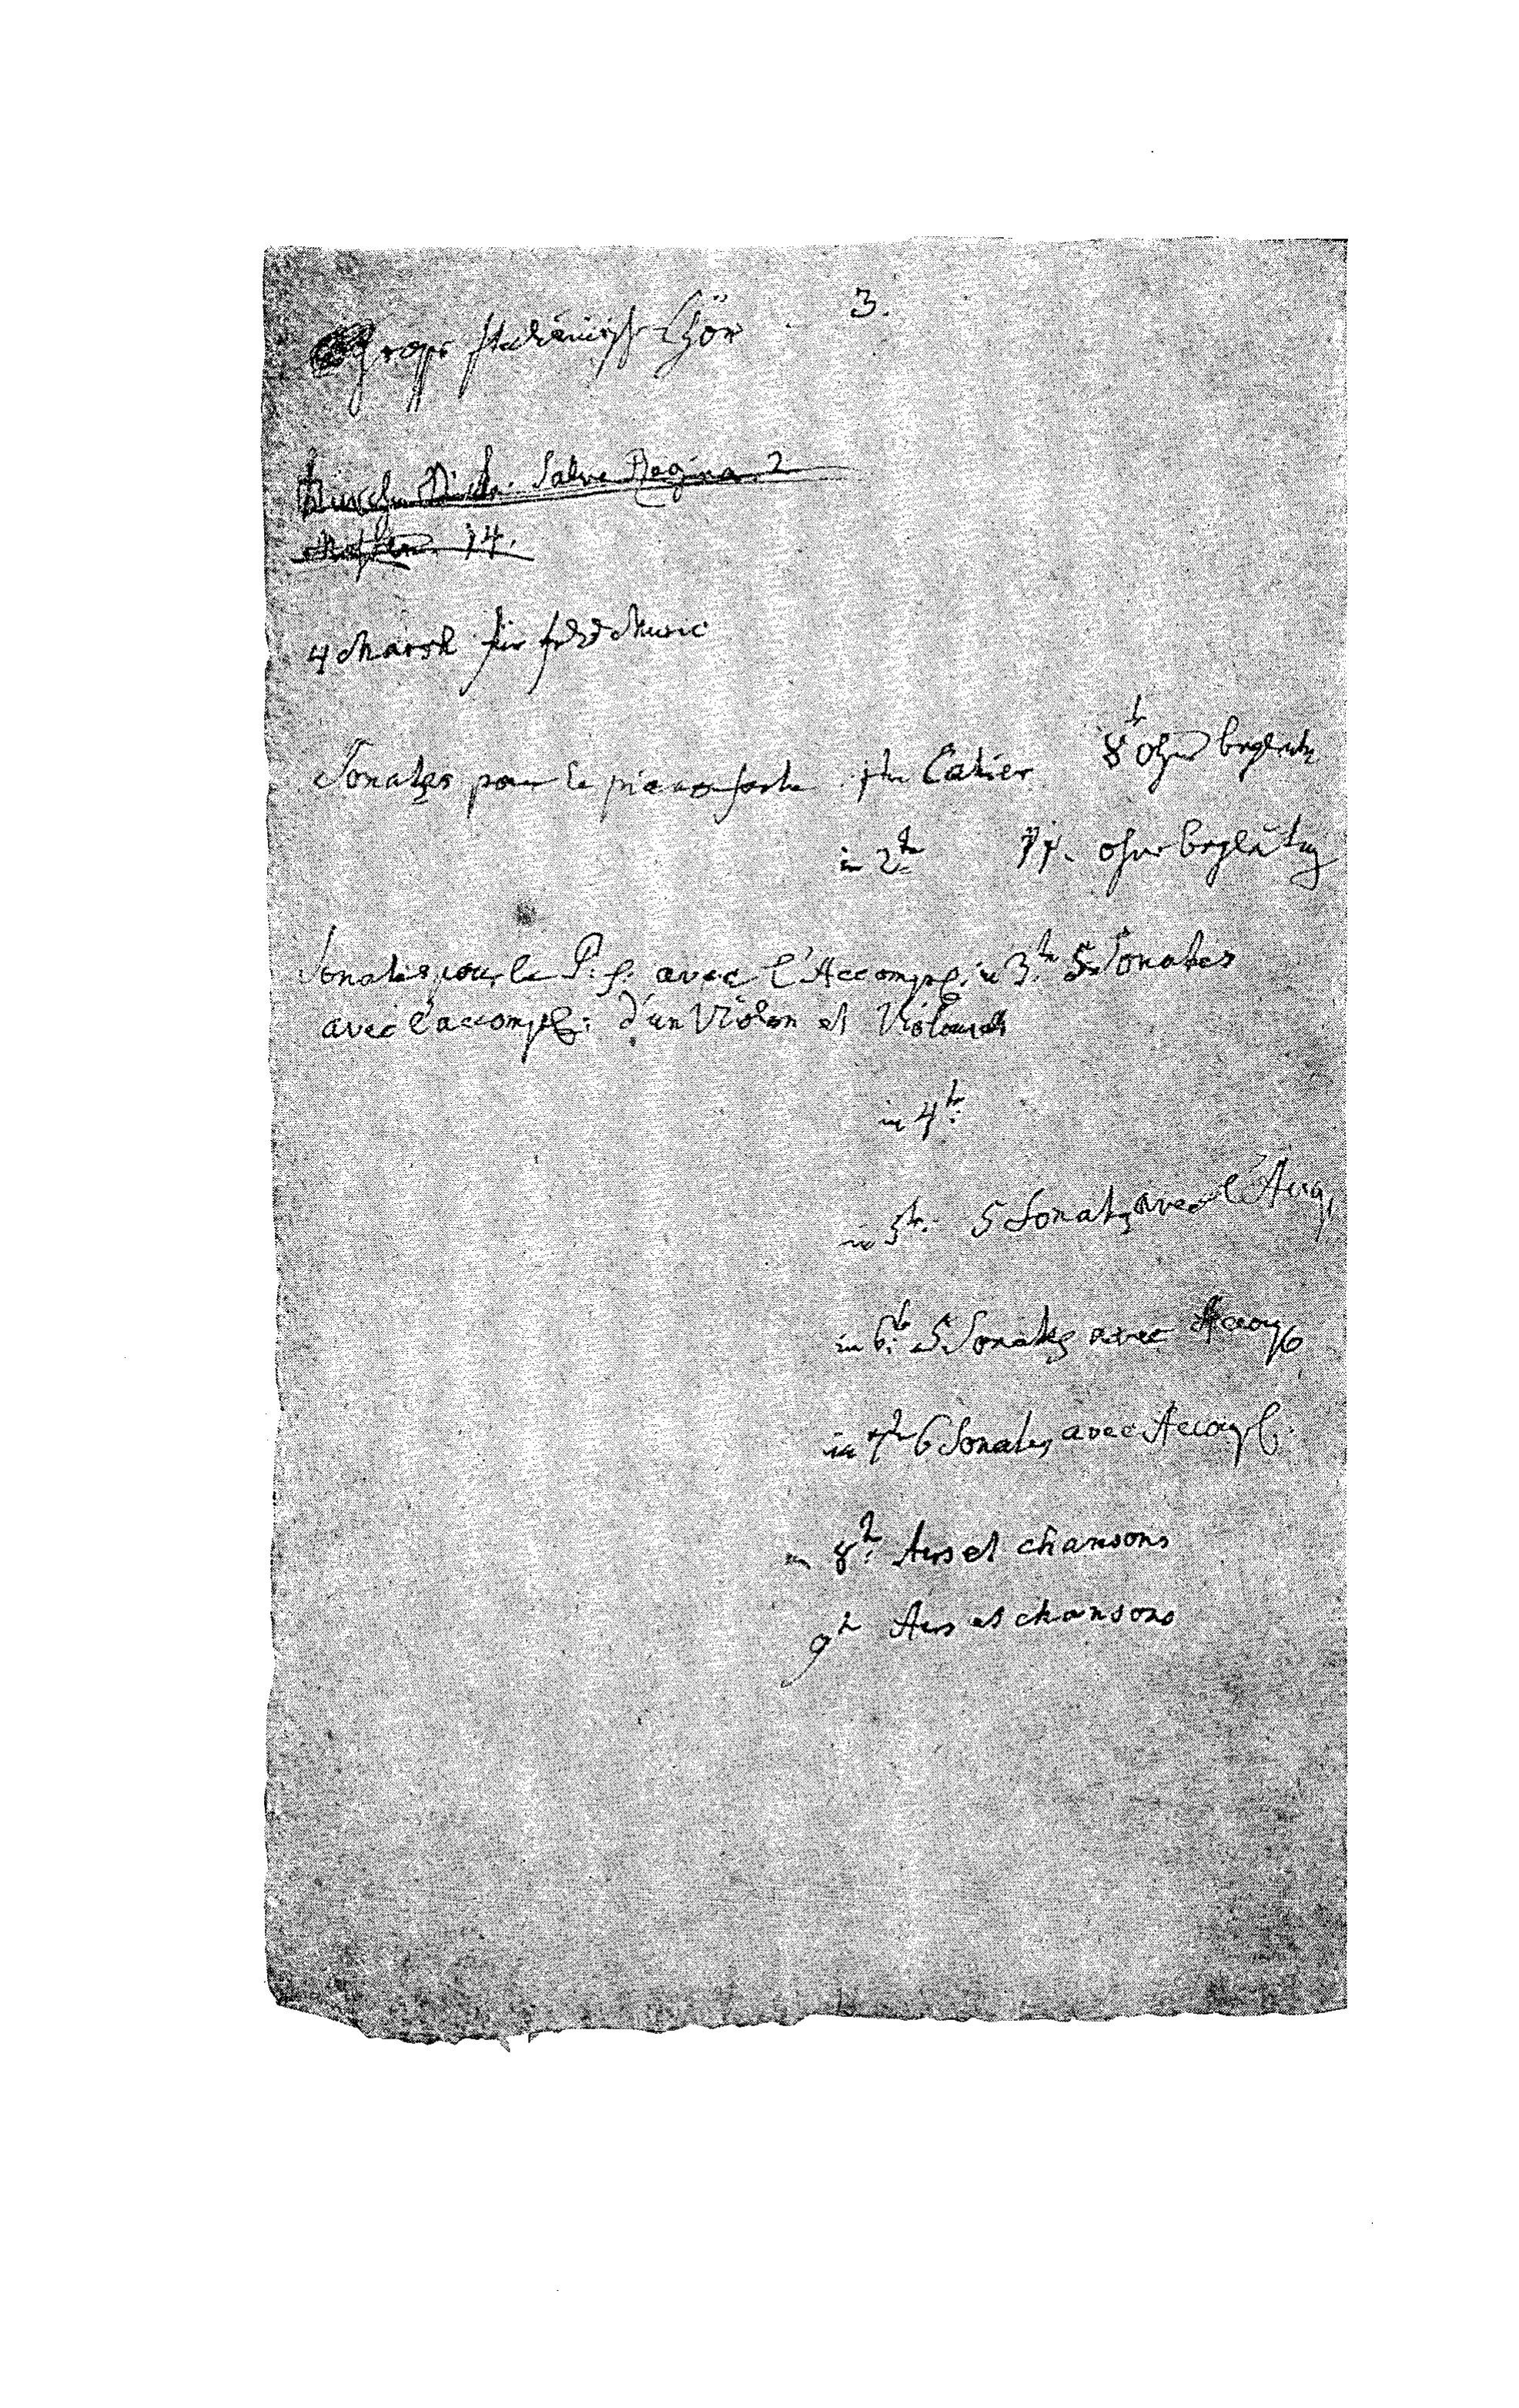 Große italienische Chör 3.
Salve Regina 2
Messen 14.
4 March für feld Music
Sonates pour le pianoforte 1ter Cahier 8 ohne begleitu
in 2ter 11. ohne begleitung
Sonates pour le P. f. avec l'Accompag: in 3ter 5 Sonates
avec l'accompag: d'un Violon et Violoncello
in 4ter
in 5ter 5 Sonates avec l'Accg.
in 6ter 5 Sonates avec Accomp
in 7ter 6 Sonates avec Accomp
in 8ter Airs et chansons
9ter Airs et chansons